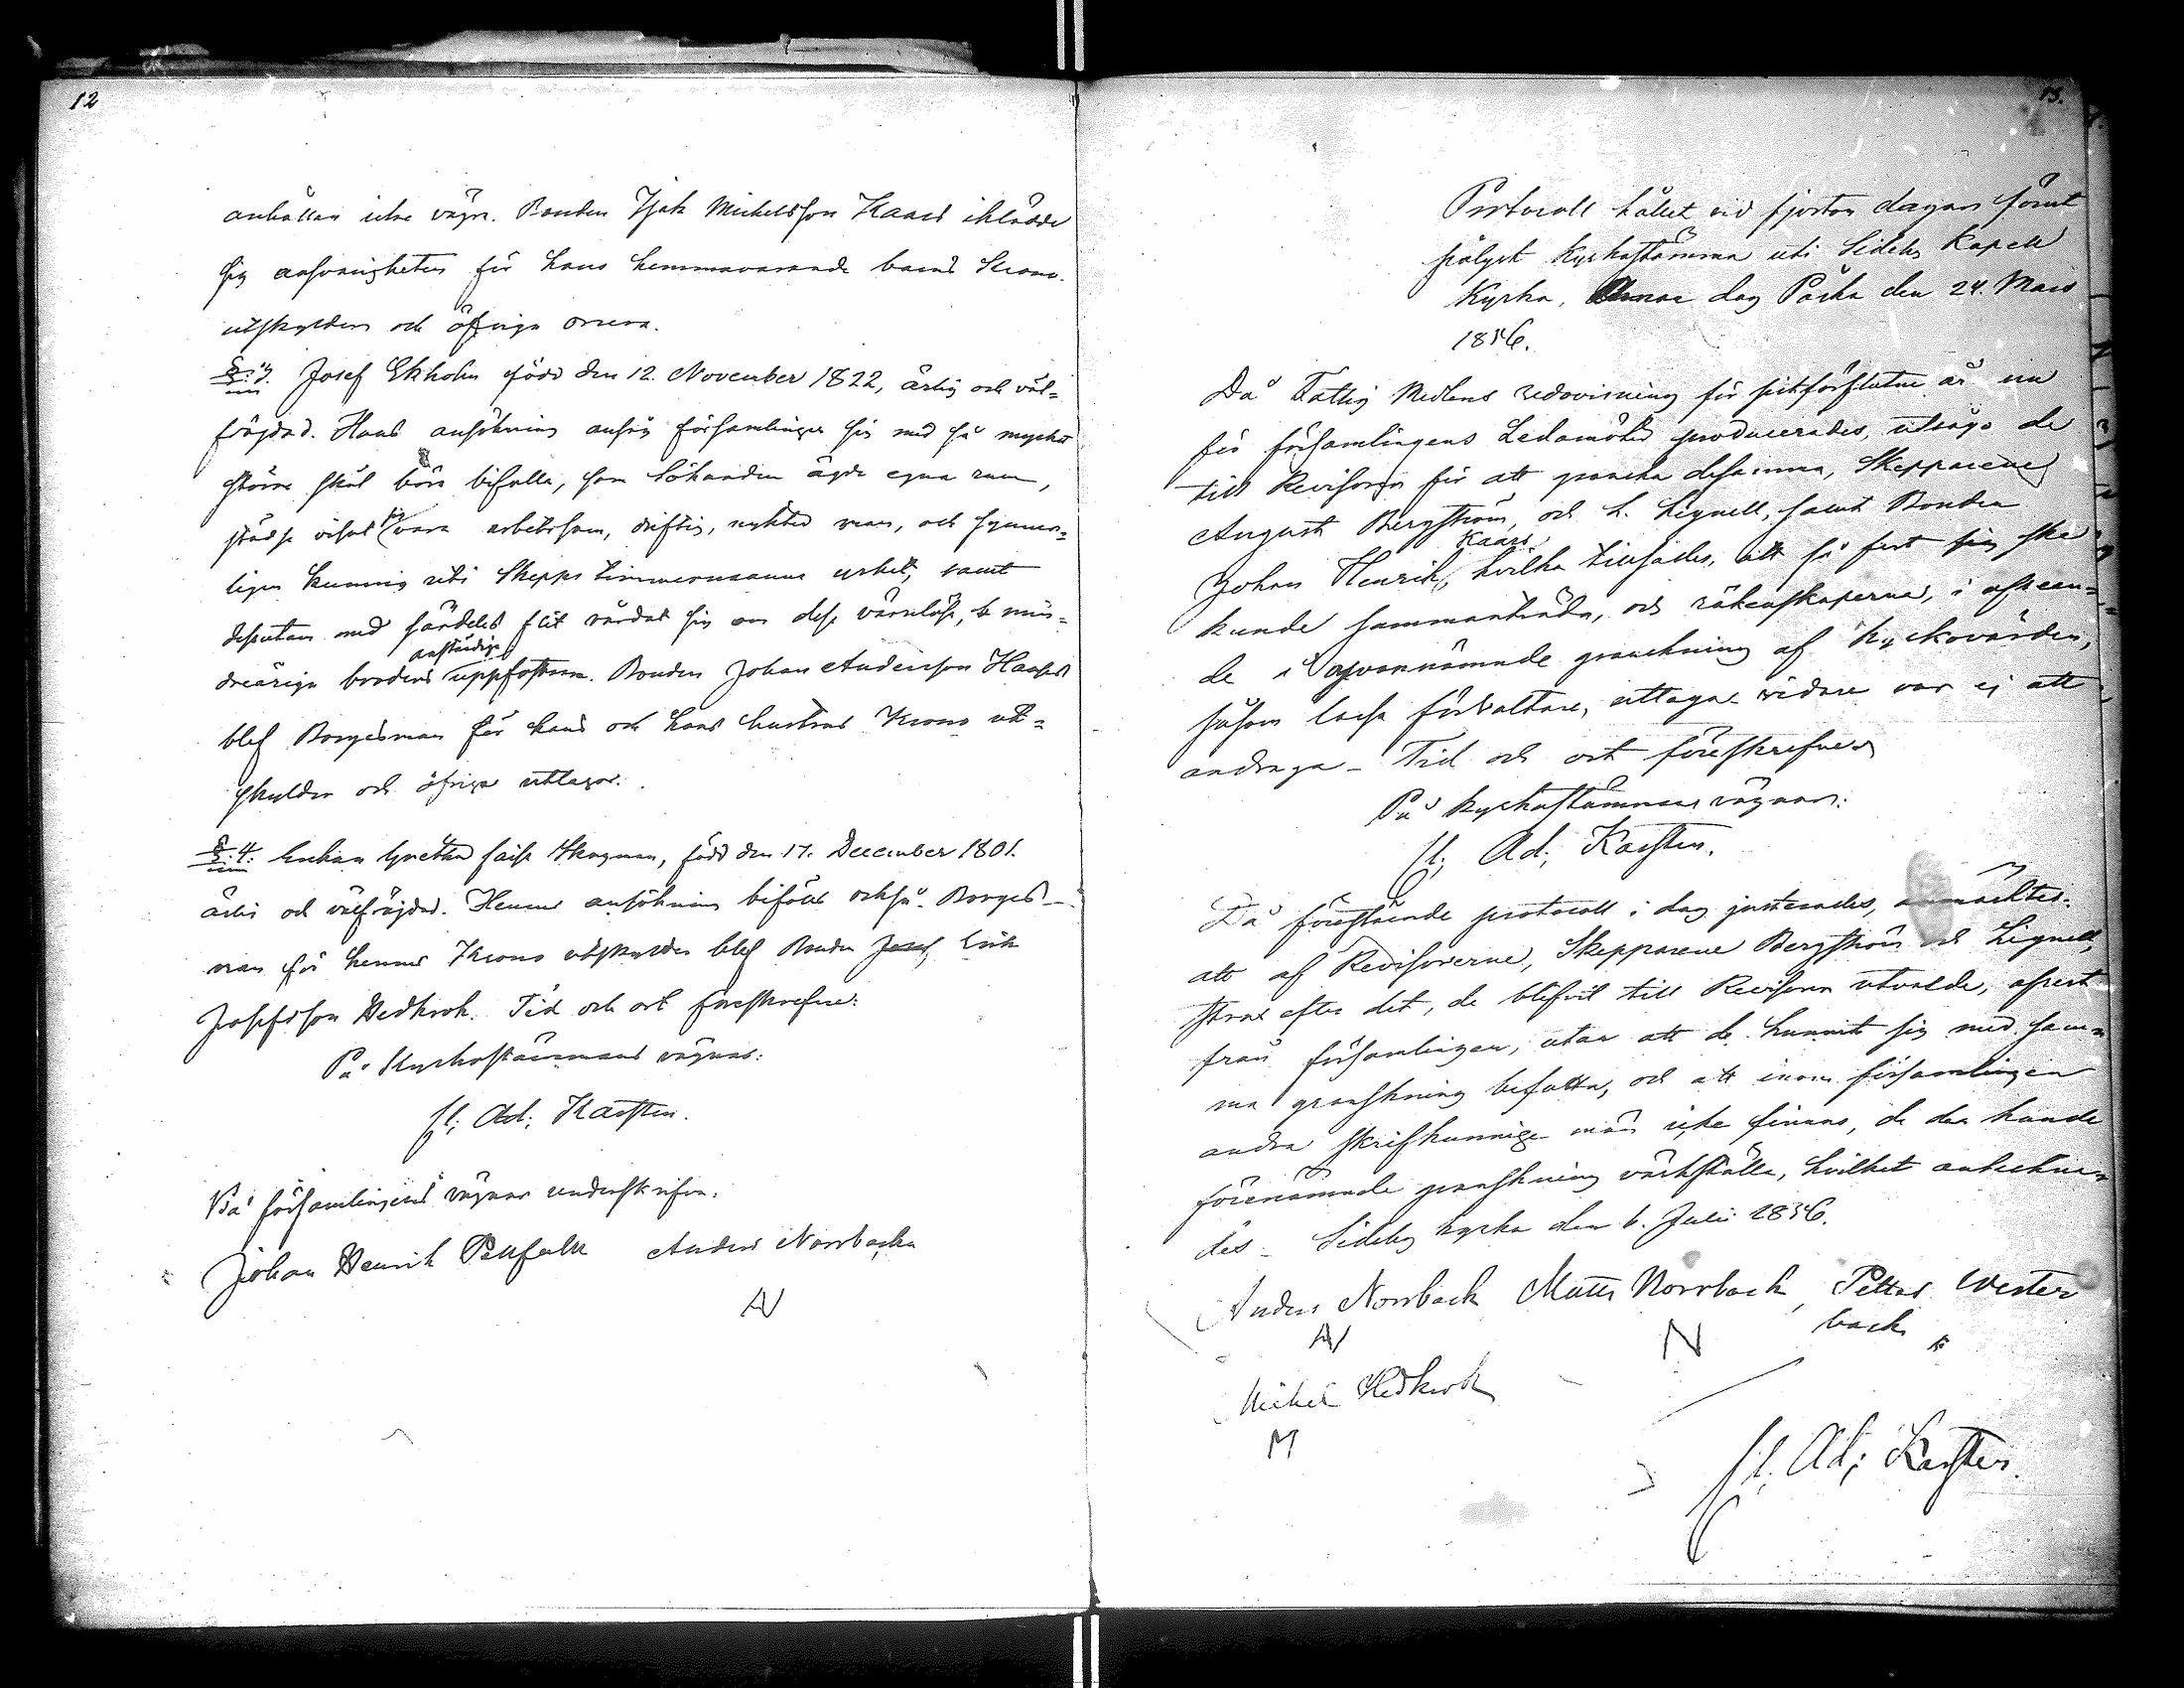 12
anhållan icke vägra. Bonden Isak Michelsson Kaars iklädde
sig ansvarigheten för hans hemmavarande barns Krono-
utskylder och öfriga onera.
§. 3. Josef Ekholm född den 12. November 1822, ärlig och väl-
frägdad. Hans ansökning ansåg församlingen sig med så mycket
större skäl böra bifalla, som Sökanden ägde egna rum,
städse visat sig vara arbetsam, driftig, nykter man, och synner-
ligen kunnig uti Skepps timmermanns yrket, samt
dessutom med särdeles flit vårdat sig om dess värnlöse, b min-
dreåriga broders anständiga uppfostran. Bonden Johan Andersson
blef Borgesman för hans och hans hustrus Krono ut-
skylder och öfriga utlagor.
§. 4. Enkan Gretha Caisa Skogman, född den 17. December 1801.
ärlig och välfrägdad. Hennes ansökning bifölls också. Borges-
man för hennes Krono utskylder blef Bonden Josef, Erik
Josefsson Hedkrok. Tid och ort föreskrefne:
På Kyrkostämmans vägnar:
Ad; Karsten.
På församlingens vägnar underskrifva:
Johan Henrik Pellfolk Anders Norrbacka
AN
13.
Protocoll hållet vid fjorton dagar förut
pålyst Kyrkostämma uti Sideby Kapell
Kyrka, Annan dag Påska den 24. Mars
1856.
Då Fattig Medlens redovisning för sistförflutne år nu
för församlingens Ledamöter producerades, utsågo de
till Revisorer för att granska desamma, Skepparene
August Bergström, och L. Lignell, samt Bonden
Johan Henrik Kaars, hvilka tillsades, att så fort sig ske
kunde sammanträda, och räkenskaperna, i afseen-
de å ofvannämnde granskning af Kyrkovärden,
såsom Cassa förvaltare, uttaga. vidare var ej att
andraga – Tid och ort föreskrefne
På kyrkostämmans vägnar:
Ad; Karsten.
Då förestående protocoll i dag justerades, anmärktes:
att af Revisorerne, Skepparene Bergström och Lignell,
strax efter det, de blifvit till Revisorer utvalde, afrest
från församlingen, utan att de hunnit sig med sam-
ma granskning befatta, och att inom församlingen
andra skrifkunnige män icke finnas, de der kunde
förenämnde granskning värkställa, hvilket antecknas-
des – Sideby kyrka den 6. Julii 1856.
Anders Norrback Matts Norrback, Petter Wester
back
AN N
Michel Hedkrok
M
Ad; Karsten.